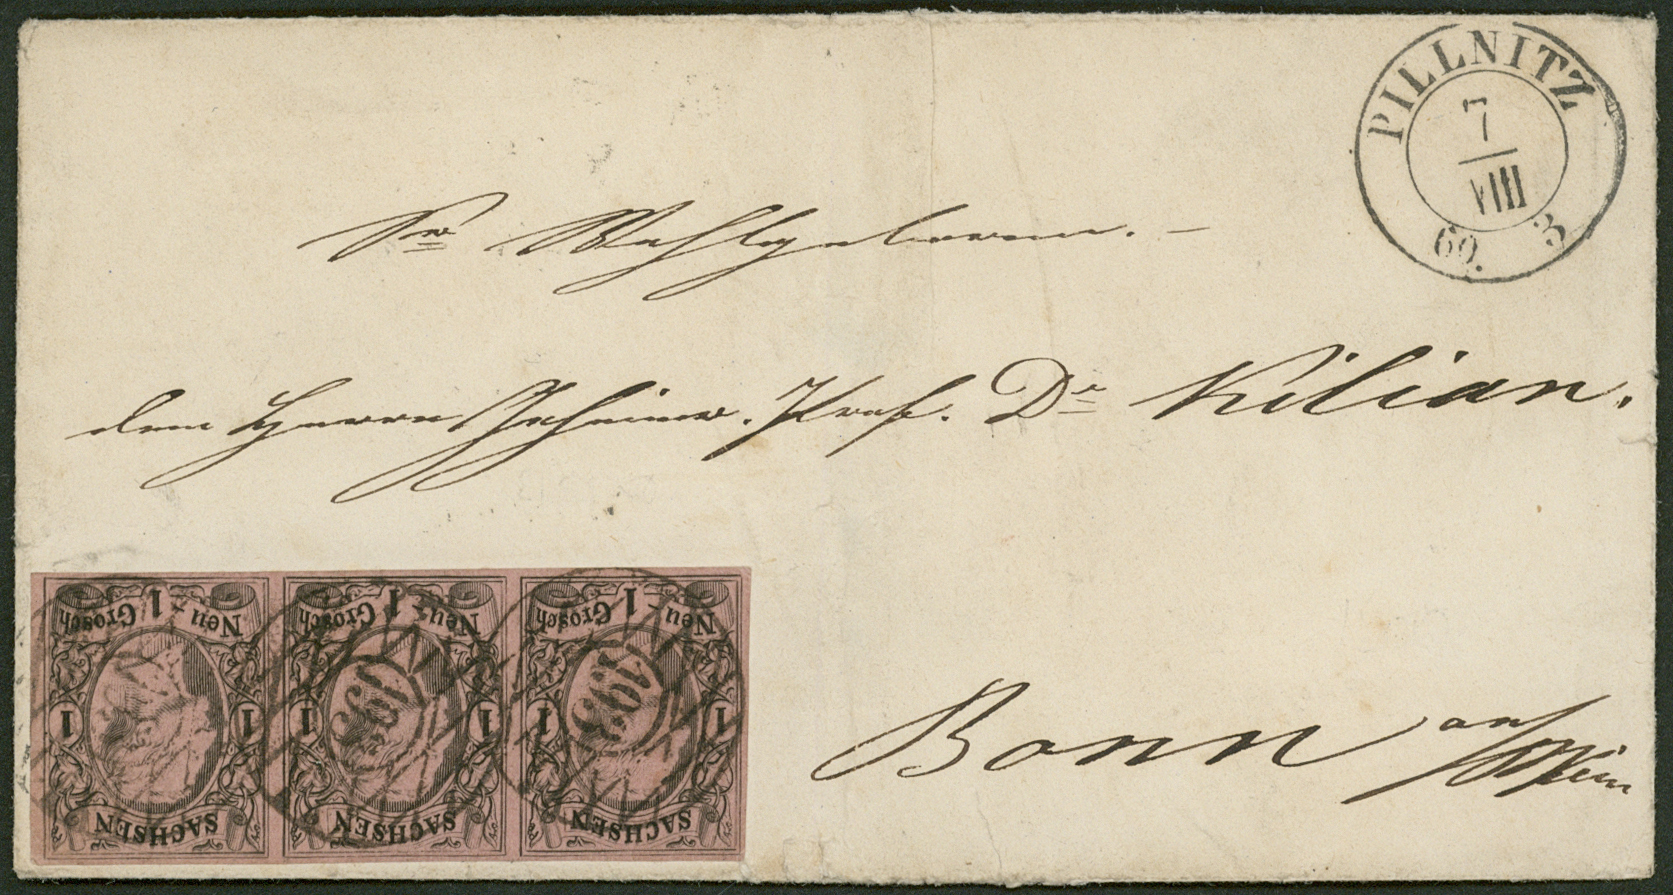 PILLNITZ
7
VIII
60. 3
Sr Wohlgeboren. -
dem Herrn Geheimr. Prof. Dr Kilian.
Bonn am Rhein
Neu - 1 Grosch Neu - 1 Grosch Neu - 1 Grosch
193 193
1 1 1 1 1 1
SACHSEN SACHSEN SACHSEN